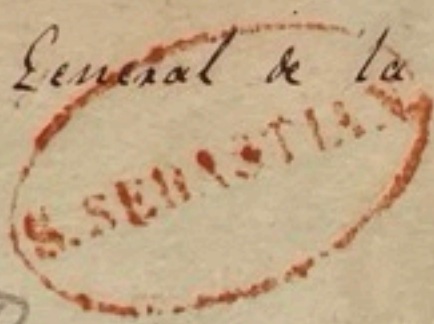 General de la
S. SEBASTIAN